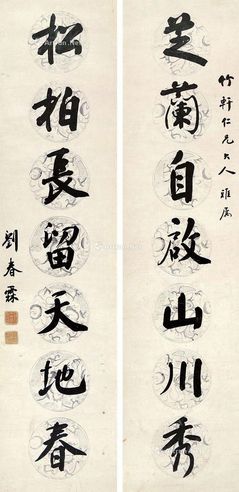 竹軒仁兄大人雅属
芝蘭自啟山川秀
松柏長留天地春
劉春霖